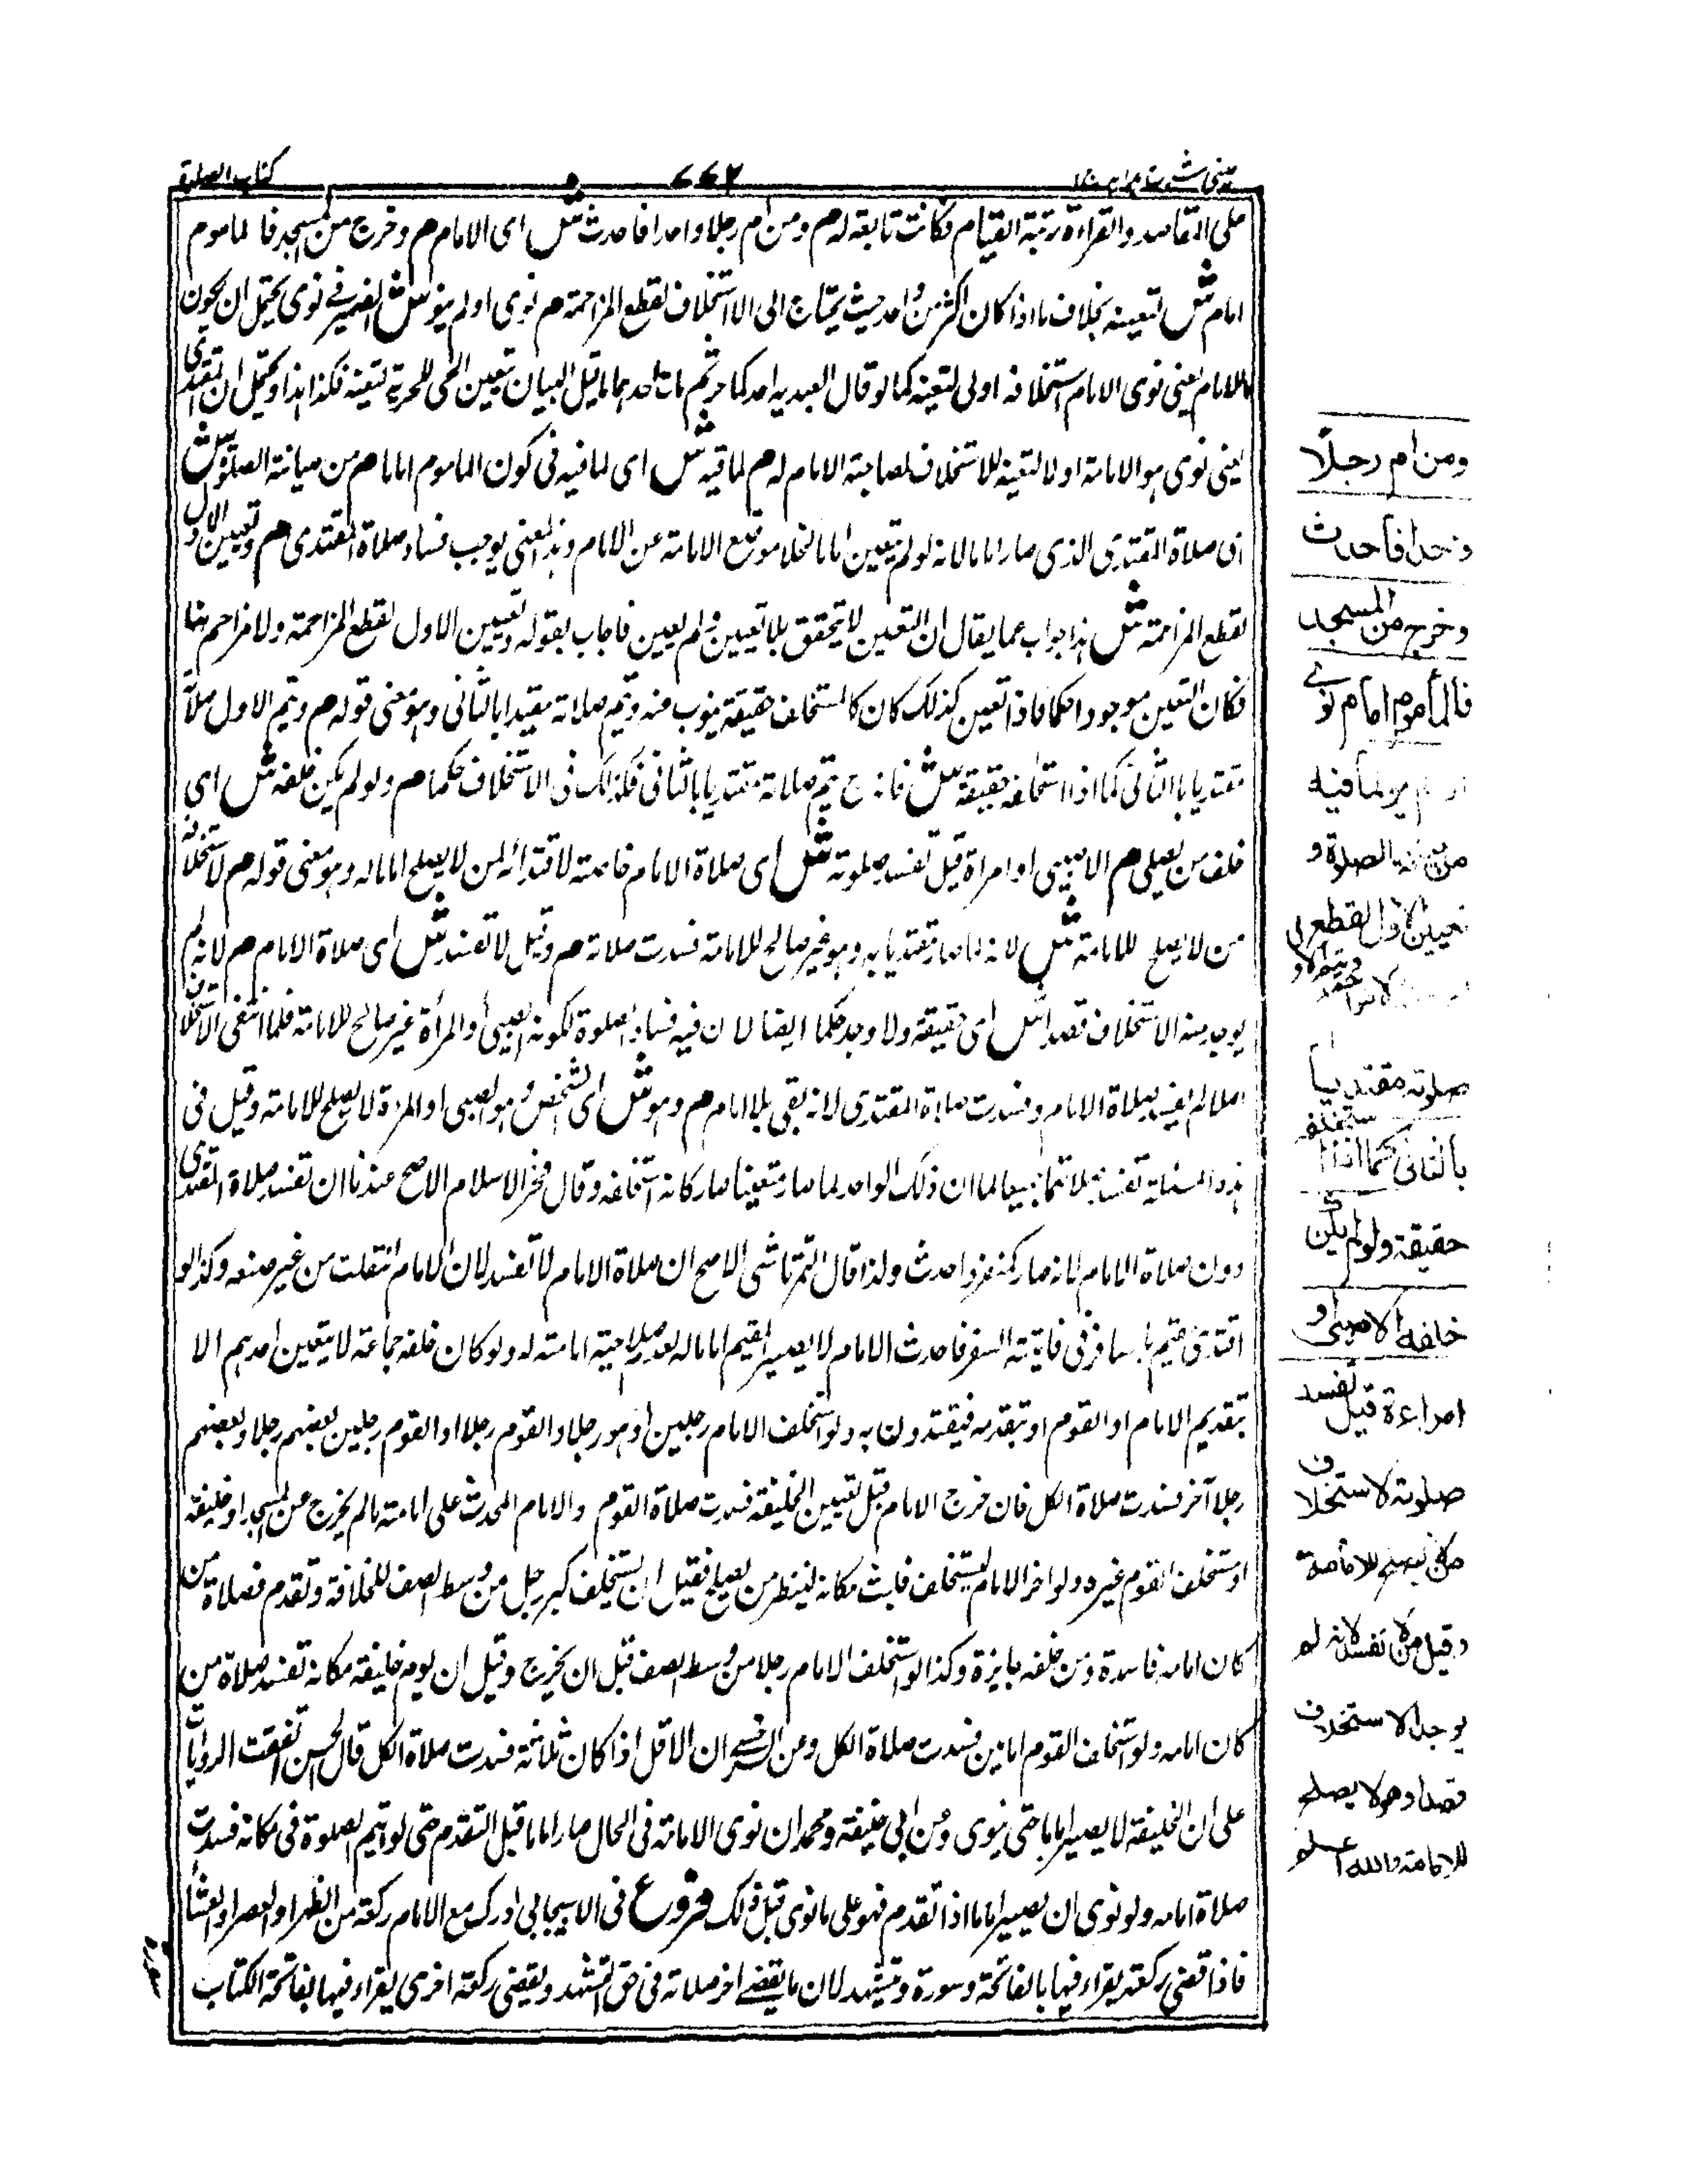 عینی شرح ہدایہ ج۱
۷۷۲
کتاب الصلوۃ
على المقاصد والقراءة زينة القيام فكانت تابعة له م ومن ام رجلا واحدا فاحدث ش اى الامام م وخرج من المسجد فالماموم
امام ش لتعينه بخلاف ما اذا كان اكثر من واحد حيث يحتاج الى الاستخلاف لقطع المزاحمة م نوى او لم ينو ش الضمير في نوى يحتمل ان يكون
للامام يعنى نوى الامام استخلافه اولى لتعينه كما لو قال لعبديه احدكما حر ثم مات احدهما قبل البيان تعين الحى للحرية لتعينه فكذا هذا ويحتمل ان المقتدى
يعنى نوى هو الامامة اولا لتعينه للاستخلاف لصاحبة الامام له م لما فيه ش اى لما فيه فى كون الماموم اماما م من صيانة الصلوة ش
اى صلاة المقتدى الذى صار اماما لانه لو لم يتعين اماما لخلا موضع الامامة عن الامام وهذا المعنى يوجب فساد صلاة المقتدى م وتعيين الاول
لقطع المزاحمة ش هذا جواب عما يقال ان التعين لا يتحقق بلا تعيين ولم يعين فاجاب بقوله وتعيين الاول لقطع المزاحمة ولا مزاحم هنا
فكان التعين موجودا حكما فاذا تعين كذلك كان كالمستخلف حقيقة ينوب منه ويتم صلاته مقتديا بالثانى وهو معنى قوله م ويتم الاول صلاته
مقتديا بالثانى كما اذا استخلفه حقيقة ش فانه ح يتم صلاته مقتديا بالثانى فكذلك فى الاستخلاف حكما م ولو لم يكن خلفه ش اى
خلف من يصلى م الا صبى او امراة قيل تفسد صلوته ش اى صلاة الامام خاصة لاقتدائه لمن لا يصلح اماما له وهو معنى قوله م لاستخلافه
من لا يصلح للامامة ش لانه لما صار مقتديا به وهو غير صالح للامامة فسدت صلاته م وقيل لا تفسد ش اى صلاة الامام م لانه لم
يوجد منه الاستخلاف قصدا ش اى حقيقة ولا وجد حكما ايضا لان فيه فساد الصلوة لكونه الصبى او المرأة غير صالح للامامة فلما انتفى الاستخلاف
اصلا لم يفسد صلاة الامام وفسدت صلاة المقتدى لانه بقى بلا امام م وهو ش اى الشخص وهو الصبى او المرأة لا يصلح للامامة وقيل فى
هذه المسئلة تفسد صلاتهما جميعا لما ان ذلك الواحد لما صار متعينا صار كانه استخلفه وقال فخر الاسلام الاصح عندنا ان تفسد صلاة المقتدى
دون صلاة الامام لانه صار كمنفرد احدث ولذا قال التمرتاشى الاصح ان صلاة الامام لا تفسد لان الامام انتقلت من غير صنعه وكذا لو
اقتدى مقيم بمسافر فى فايتة السفر فاحدث الامام لا يصير المقيم اماما له لعدم صلاحية امامته له ولو كان خلفه جماعة لا يتعين احدهم الا
بتقديم الامام او القوم او بتقدمه فيقتدون به ولو استخلف الامام رجلين او هو رجلا والقوم رجلا او القوم رجلين بعضهم رجلا وبعضهم
رجلا آخر فسدت صلاة الكل فان خرج الامام قبل تعيين الخليفة فسدت صلاة القوم والامام المحدث على امامته ما لم يخرج عن المسجد او خليفته
او يستخلف القوم غيره ولو اخر الامام ليستخلف فلبث مكانه لينظر من يصلح فقيل ان يستخلف كبر رجل من وسط الصف للخلافة وتقدم فصلاة من
كان امامه فاسدة ومن خلفه جايزة وكذا لو استخلف الامام رجلا من وسط الصف قبل ان يخرج وقيل ان يوم خليفة مكانه تفسد صلاة من
كان امامه ولو استخلف القوم امامين فسدت صلاة الكل ومن السرخسى ان الاقل اذا كان ثلاثة فسدت صلاة الكل قال الحسن اتفقت الروايات
على ان الخليفة لا يصير اماما حتى ينوى وعن ابى حنيفة ومحمد ان نوى الامامة فى الحال صار اماما قبل التقدم حتى لو اتم الصلوة فى مكانه فسدت
صلاة امامه ولو نوى ان يصير اماما اذا تقدم فهو على ما نوى قبل ذلك فروع فى الاسبيجابى ادرك مع الامام ركعة من الظهر او العصر او العشاء
فاذا قضى ركعة يقراء فيها بالفاتحة وسورة ويتشهد لان ما يقضى اخر صلاته فى حق التشهد ويقضى ركعة اخرى يقراء فيها بفاتحة الكتاب
ومن ام رجلاً
واحدا فاحدث
وخرج من المسجد
فالمأموم امام نوى
او لم ينو لما فيه
من صيانة الصلاة و
تعيين الاول لقطع
ويتم الاول
صلوته مقتديا
بالثانى كما اذا استخلفه
حقيقة ولو لم يكن
خلفه الا صبى او
امراءة قيل تفسد
صلوته لاستخلاف
من لا يصلح للامامة
وقيل لا تفسد لانه لم
يوجد الاستخلاف
قصدا وهو لا يصلح
للامامة والله اعلم